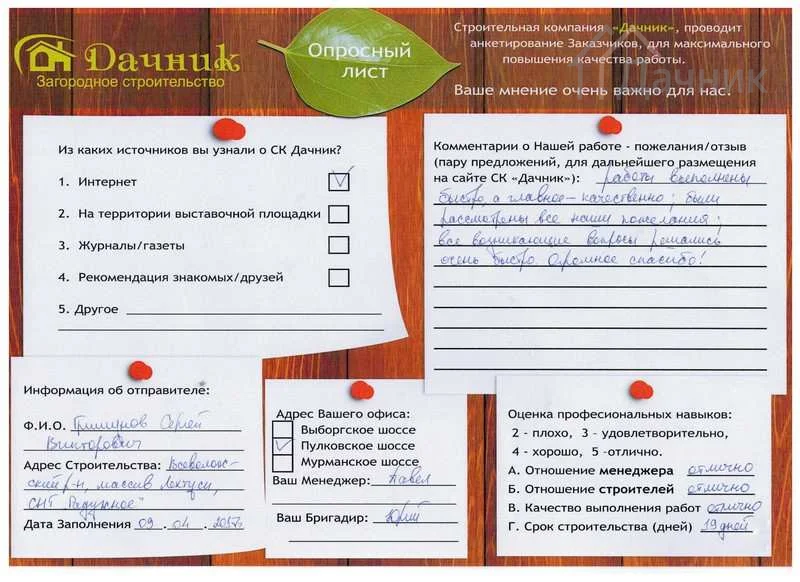 Дачник
Загородное строительство
Опросный
лист
Строительная компания «Дачник», проводит
анкетирование Заказчиков, для максимального
повышения качества работы.
Ваше мнение очень важно для нас.
Дачник
Из каких источников вы узнали о СК Дачник?
1. Интернет
2. На территории выставочной площадки
3. Журналы/газеты
4. Рекомендация знакомых/друзей
5. Другое
Комментарии о Нашей работе - пожелания/отзыв
(пару предложений, для дальнейшего размещения
на сайте СК «Дачник»): Работы выполнены
быстро, а главное - качественно; были
рассмотрены все наши пожелания;
все возникающие вопросы решались
очень быстро. Огромное спасибо!
Информация об отправителе:
Ф.И.О. Сергей
Викторович
Адрес Строительства: Всеволож-
ский р-н, массив
СНТ "Радужное"
Дата Заполнения 09 . 04 . 2017г
Адрес Вашего офиса:
Выборгское шоссе
Пулковское шоссе
Мурманское шоссе
Ваш Менеджер: Павел
Ваш Бригадир: Юрий
Оценка професиональных навыков:
2 - плохо, 3 - удовлетворительно,
4 - хорошо, 5 -отлично.
А. Отношение менеджера отлично
Б. Отношение строителей отлично
В. Качество выполнения работ отлично
Г. Срок строительства (дней) 19 дней